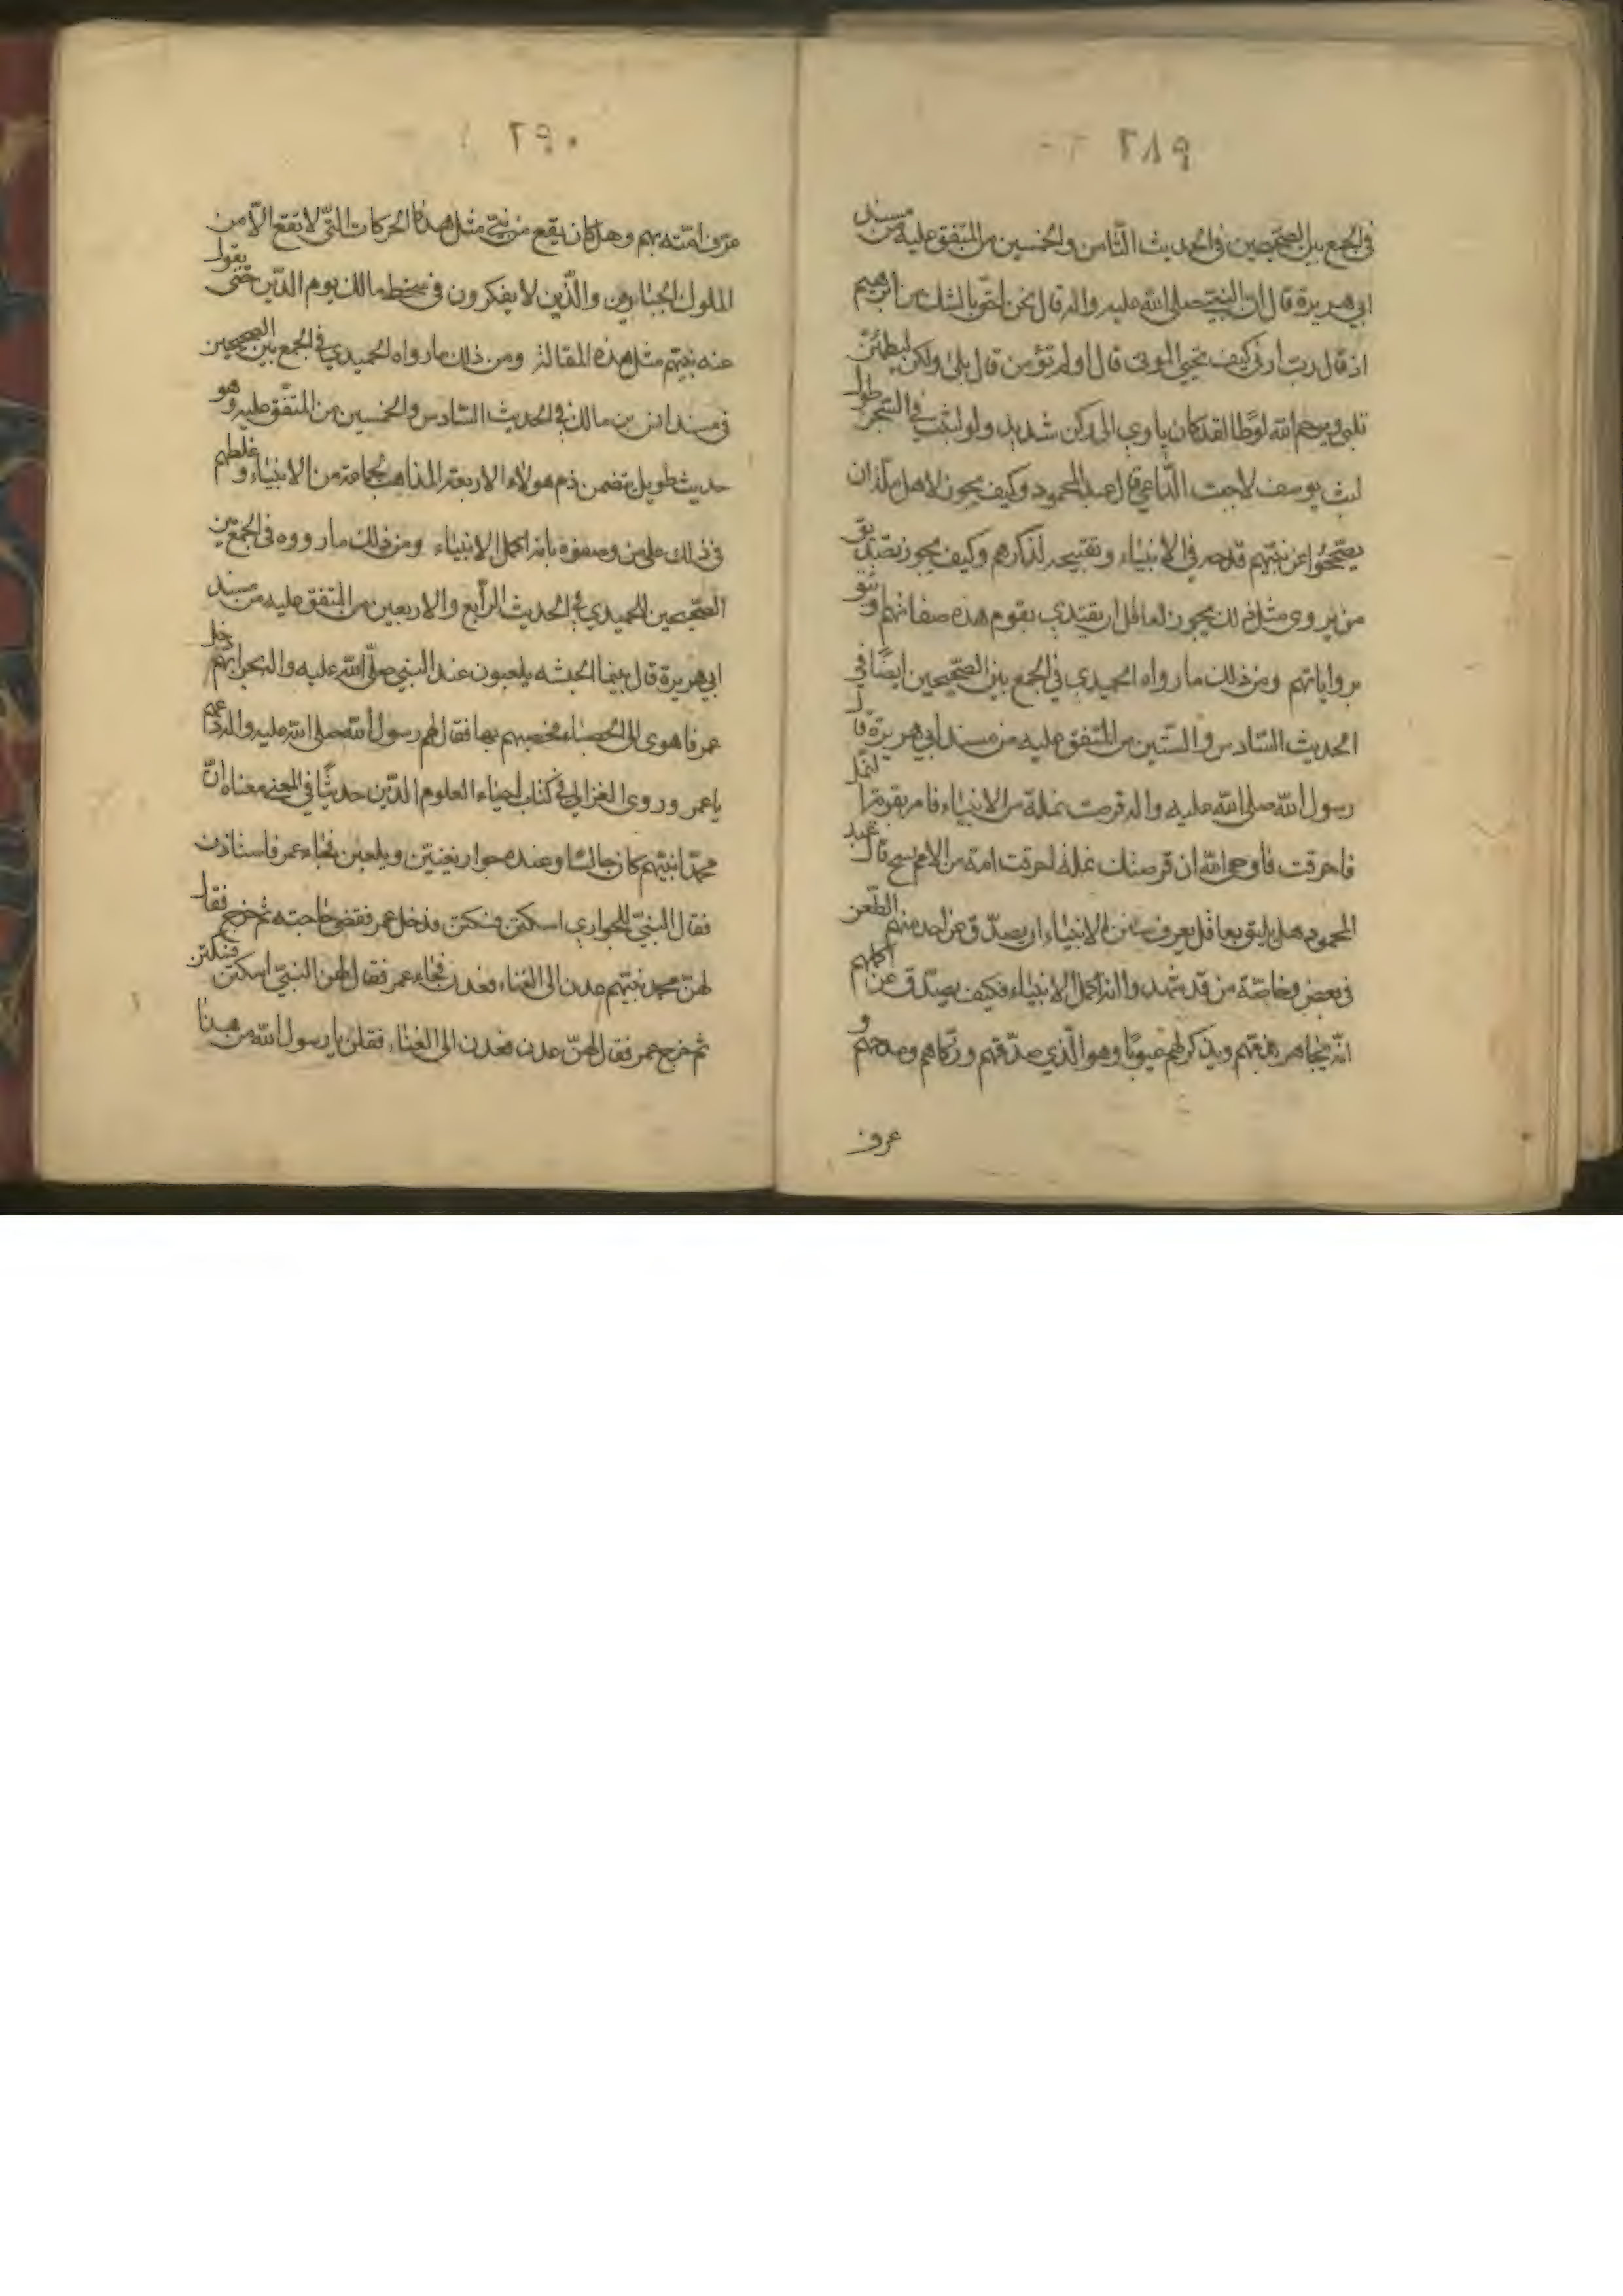 ٢٨٩
في الجمع بين الصحيحين في الحديث الثامن والخمسين من المتفق عليه من مسند
ابي هريرة قال ان النبي صلى الله عليه واله قال نحن احق بالشك من ابرهيم
اذ قال رب ارني كيف تحيي الموتى قال اولم تؤمن قال بلى ولكن ليطمئن
قلبي ويرحم الله لوطا لقد كان ياوي الى ركن شديد ولو لبثت في السجن طول
لبث يوسف لاجبت الداعي قال عبد المحمود وكيف يجوز لاهل
يصححوا عن نبيهم قدحه في الانبياء وتقبيحه لذكرهم وكيف يجوز تصديق
من يروي مثل ذلك يجوز لعاقل ان يقتدي بقوم هذه صفاتهم و
برواياتهم ومن ذلك ما رواه الحميدي في الجمع بين الصحيحين ايضا في
الحديث السادس والستين من المتفق عليه من مسند ابي هريرة قال
رسول الله صلى الله عليه واله قرصت نملة من الانبياء فامر بقرية النمل
فاحرقت فاوحى الله ان قرصتك نملة احرقت امة من الامم تسبح قال عبد
المحمود هل يليق بعاقل يعرف الانبياء ان يصدق عن احد منهم الطعن
في بعض وخاصة من قد شهدوا انه اكمل الانبياء فكيف يصدق عن اكملهم
انه يجاهر بذمهم ويذكر لهم عيوبا وهو الذي صدقهم وزكاهم ومدحهم و
عرف
٢٩٠
عرف امته بهم وهل كان يقع من نبي مثل هذه الحركات التي لا تقع الا من
الملوك الجبارين والذين لا يفكرون في سخط مالك يوم الدين حتى يقول
عنه نبيهم مثل هذه المقالة ومن ذلك ما رواه الحميدي في الجمع بين الصحيحين
في مسند انس بن مالك في الحديث السادس والخمسين من المتفق عليه وهو
حديث طويل يتضمن ذم هولاء الاربعة المذاهب لجماعة من الانبياء و غلطهم
في ذلك على من وصفوه بانه اكمل الانبياء ومن ذلك ما رووه في الجمع بين
الصحيحين الحميدي في الحديث الرابع والاربعين من المتفق عليه من مسند
ابي هريرة قال بينما الحبشه يلعبون عند النبي صلى الله عليه واله بحرابهم دخل
عمر فاهوى الى الحصباء فحصبهم بها فقال لهم رسول الله صلى الله عليه واله دعهم
يا عمر وروى الغزالي في كتاب احياء العلوم الدين حديثا في المعنى معناه ان
محمدا نبيهم كان جالسا وعنده جوار يغنين ويلعبن فجاء عمر فاستاذن
فقال النبي للجواري اسكتن فسكتن فدخل عمر فقضى حاجته ثم خرج فقال
لهن محمد نبيهم عدن الى الغناء فعدن فجاء عمر فقال لهن النبي اسكتن فسكتن
ثم خرج عمر فقال لهن عدن فعدن الى الغناء فقلن يا رسول الله من هذا